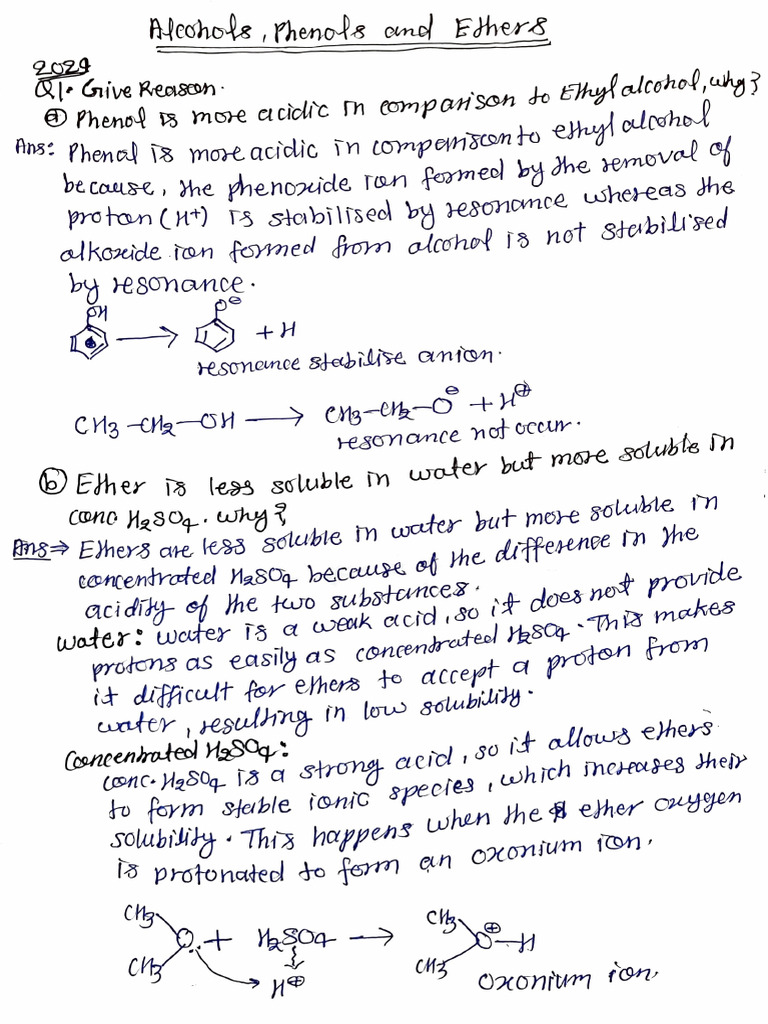 Alcohols, Phenols and Ethers
2024
Q1. Give Reason.
ⓐ Phenol is more acidic in comparison to Ethyl alcohol, why?
Ans: Phenol is more acidic in comparison to ethyl alcohol
because, the phenoxide ion formed by the removal of
proton (H⁺) is stabilised by resonance whereas the
alkoxide ion formed from alcohol is not stabilised
by resonance.
OH O⊖
⟶ + H
resonance stabilise anion.
CH3-CH2-OH ⟶ CH3-CH2-O⊖ + H⊕
resonance not occur.
ⓑ Ether is less soluble in water but more soluble in
conc H2SO4. why?
Ans⇒ Ethers are less soluble in water but more soluble in
concentrated H2SO4 because of the difference in the
acidity of the two substances.
water: water is a weak acid, so it does not provide
protons as easily as concentrated H2SO4. This makes
it difficult for ethers to accept a proton from
water, resulting in low solubility.
Concentrated H2SO4:
conc. H2SO4 is a strong acid, so it allows ethers
to form stable ionic species, which increases their
solubility. This happens when the ether oxygen
is protonated to form an oxonium ion.
CH3 CH3
O: + H2SO4 ⟶ O⊕-H
CH3 CH3
H⊕ Oxonium ion.